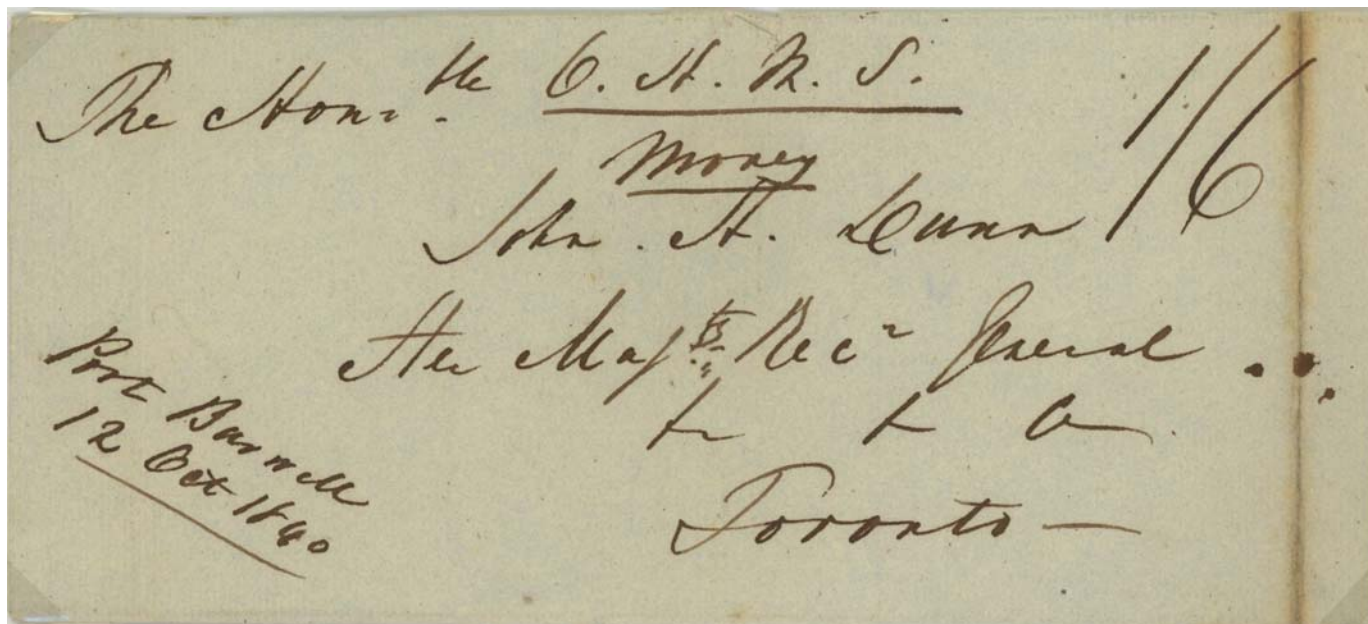 The Hon.ble O. H. M. S. 1/6
Money
John . H. Dunn
Her Maj.ts Rec.r General
& & &
Toronto —
Port Burwell
12 Oct 1840